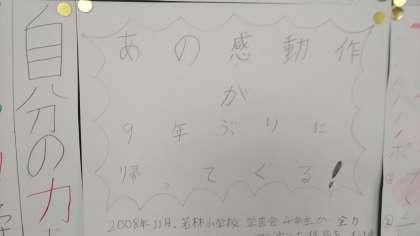 あの感動作
が
9年ぶりに
帰ってくる!
2008年11月、若林小学校 学芸会
自分の力